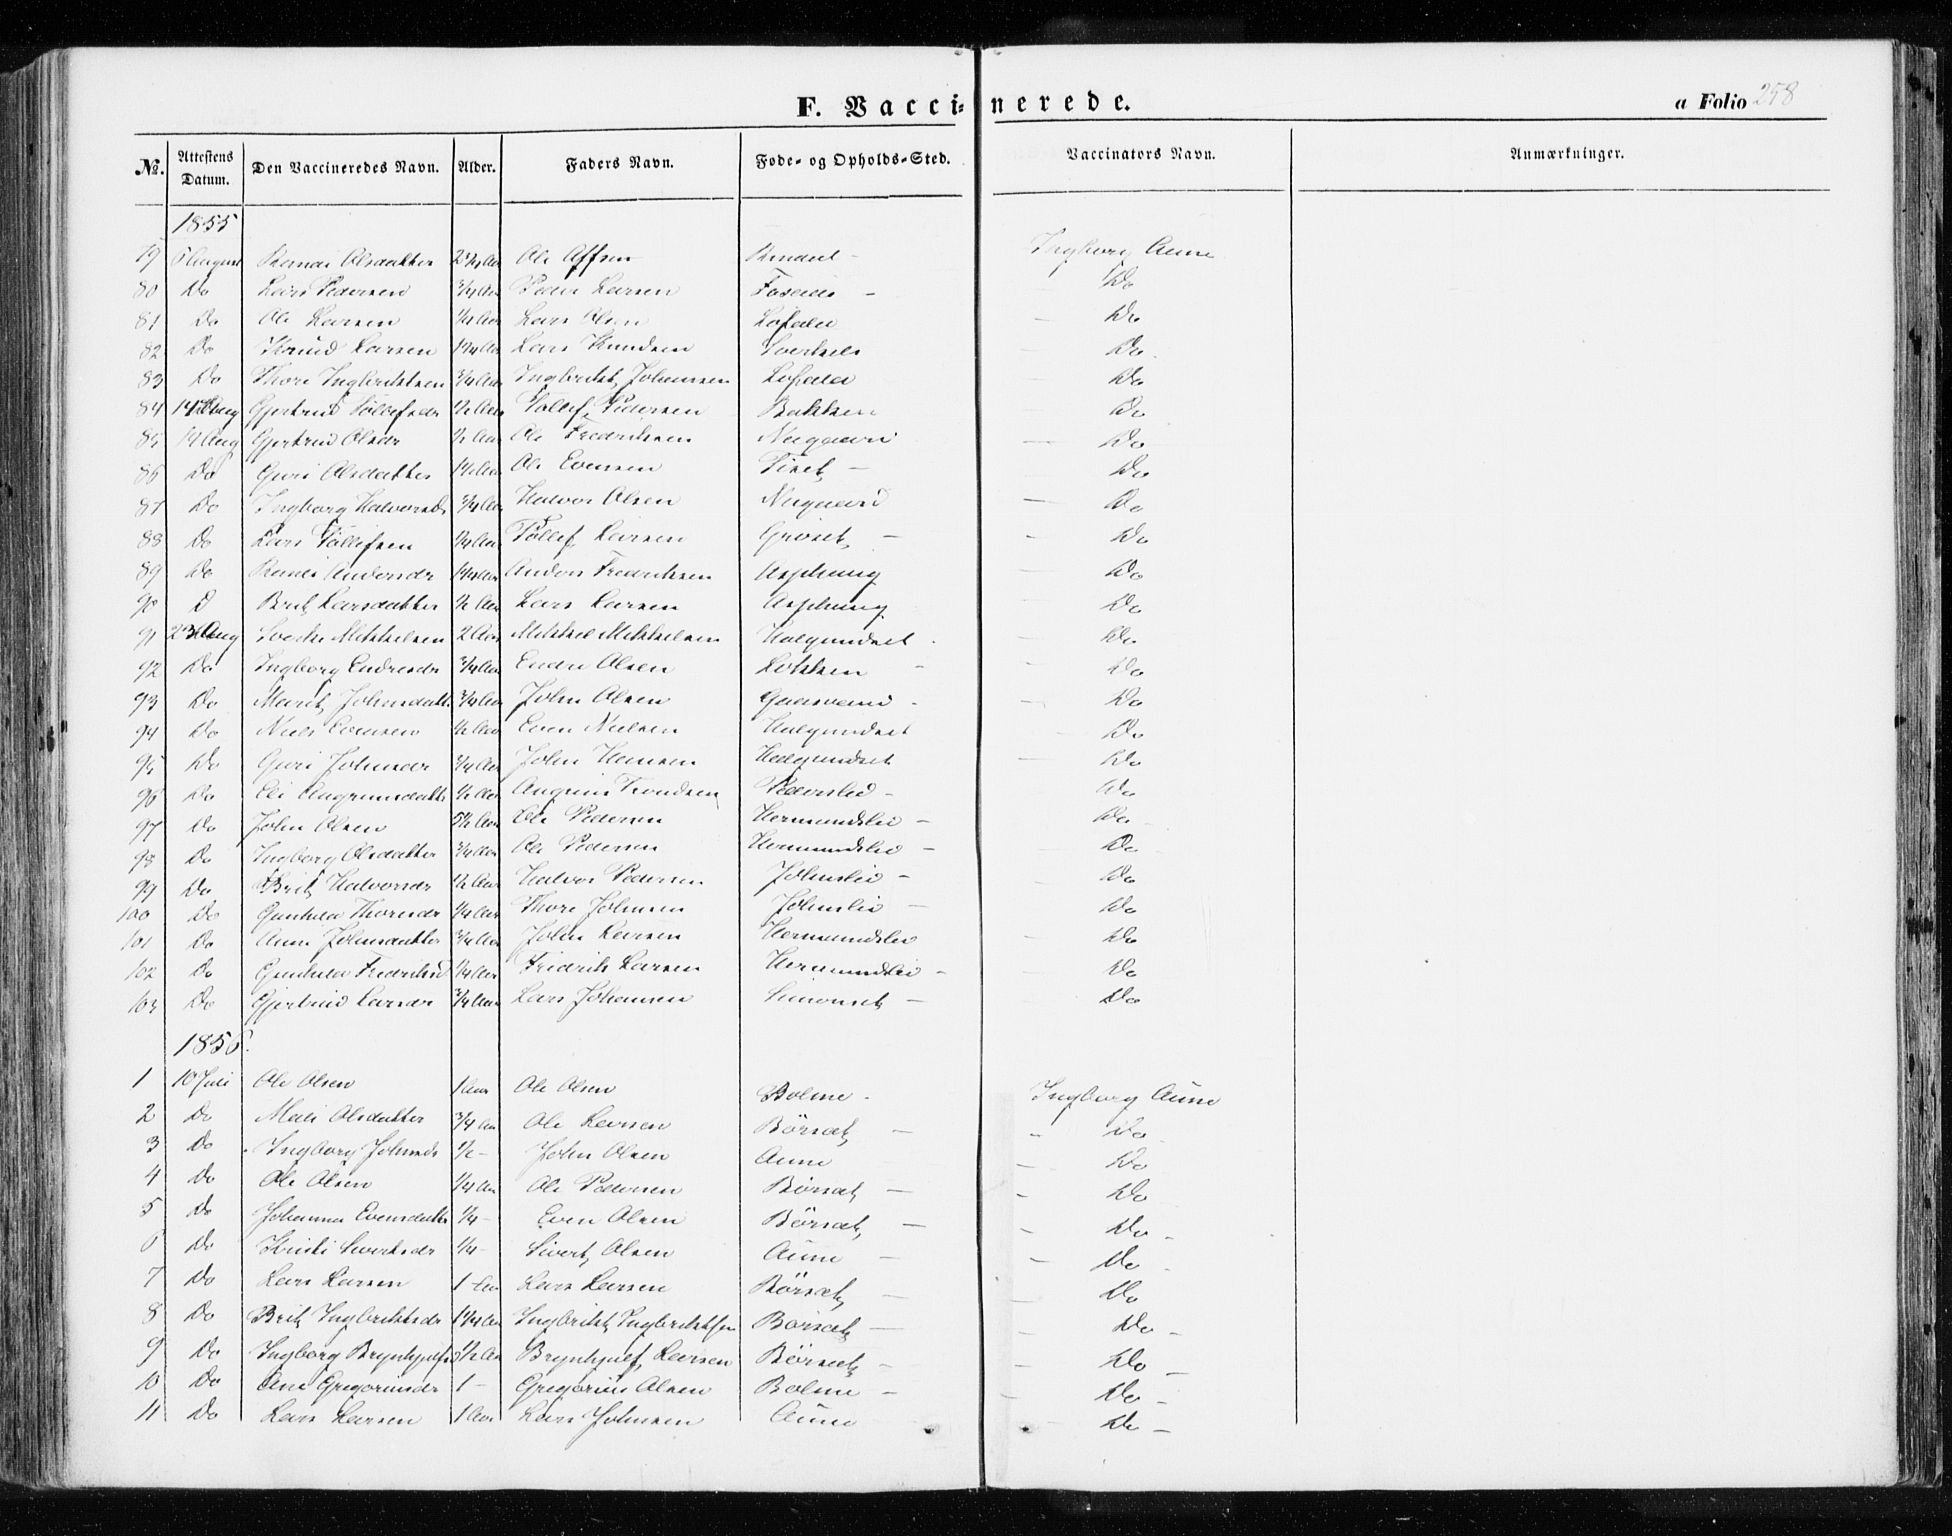 F. Vaccinerede. a Folio 258
No. Attestens Datum. Den Vaccineredes Navn. Alder. Faders Navn. Føde- og Opholds-Sted. Vaccinators Navn. Anmærkninger.
1855
79 August Olsdatter Ole Ingborg Aune
80 Do Lars Pedersen 3/4 Aar Peder Larsen Foseide - Do
81 Do Ole Larsen 1/4 Aar Lars Olsen Do
82 Do Knud Larsen Lars Knudsen Do
83 Do Thore Ingbrigtsen 3/4 Aar Ingbrikt Johansen Do
84 14 Aug Gjertrud Tollefsdr 1/2 Aar Tollef Pedersen Bakken Do
85 Aug Gjertrud Olsdr 1/2 Aar Ole Fredriksen Nygaard Do
86 Do Guri Olsdatter 1 1/2 Aar Ole Evensen Do
87 Do Ingborg Halvorsdr 3/4 Aar Halvor Olsen Nygaard Do
88 Do Lars Tollefsen 1/4 Aar Tollef Larsen Grøset - Do
89 Do Andersdr Anders Fredriksen Asphaug Do
90 D Brit Larsdatter 1/2 Aar Lars Larsen Asphaug Do
91 23 Aug Mikkelsen 2 Aar Mikkel Mikkelsen Halgundset Do
92 Do Ingborg Endresdr 3/4 Aar Endre Olsen Løkken - Do
93 Do Marit Johnsdatt 3/4 Aar John Olsen Do
94 Do Niels Evensen 1/2 Aar Even Nielsen Halgundset Do
95 Do Guri Johnsdr 3/4 Aar John Hansen Halgundset Do
96 Do 1/2 Aar Trondsen Pederslid - Do
97 Do John Olsen 5 1/2 Aar Ole Pedersen Hermundslid - Do
98 Do Ingborg Olsdatter 3/4 Aar Ole Pedersen Hermundslid - Do
99 Do Brit Halvorsdr 1/2 Aar Halvor Pedersen Johnslid - Do
100 Do Gunhild Thoresdr 1/4 Aar Thore Johnsen Johnslid - Do
101 Do Anne Johnsdatter 3/4 Aar John Larsen Hermundslid Do
102 Do Gunhild Fredriksd 1/4 Aar Fridrik Larsen Hermundslid - Do
103 Do Gjertrud Larsdr 3/4 Aar Lars Johansen Simonset - Do
1856.
1 10 Juli Ole Olsen 1 Aar Ole Olsen Bolme - Ingborg Aune
2 Do Mali Olsdatter 3/4 Aar Ole Larsen Børset - Do
3 Do Ingborg Johnsdr 1/2 - John Olsen Aune Do
4 Do Ole Olsen 1/4 Aar Ole Pedersen Børset - Do
5 Do Johanna Evensdatter 1/4 - Even Olsen Børset - Do
6 Do Kristi Sivertsdr 1/4 - Sivert Olsen Aune - Do
7 Do Lars Larsen 1 - Aar Lars Larsen Børset - Do
8 Do Brit Ingbriktsdr 1 1/4 Aar Ingbrikt Ingbriktsen Børset - Do -
9 Do Ingborg Brynhjulfsd 1/2 Aar Brynhjulf Larsen Børset - Do -
10 Do Ane Gregoriusdr 1 - Gregorius Olsen Bolme - Do -
11 Do Lars Larsen 1 Aar Lars Johnsen Aune Do -